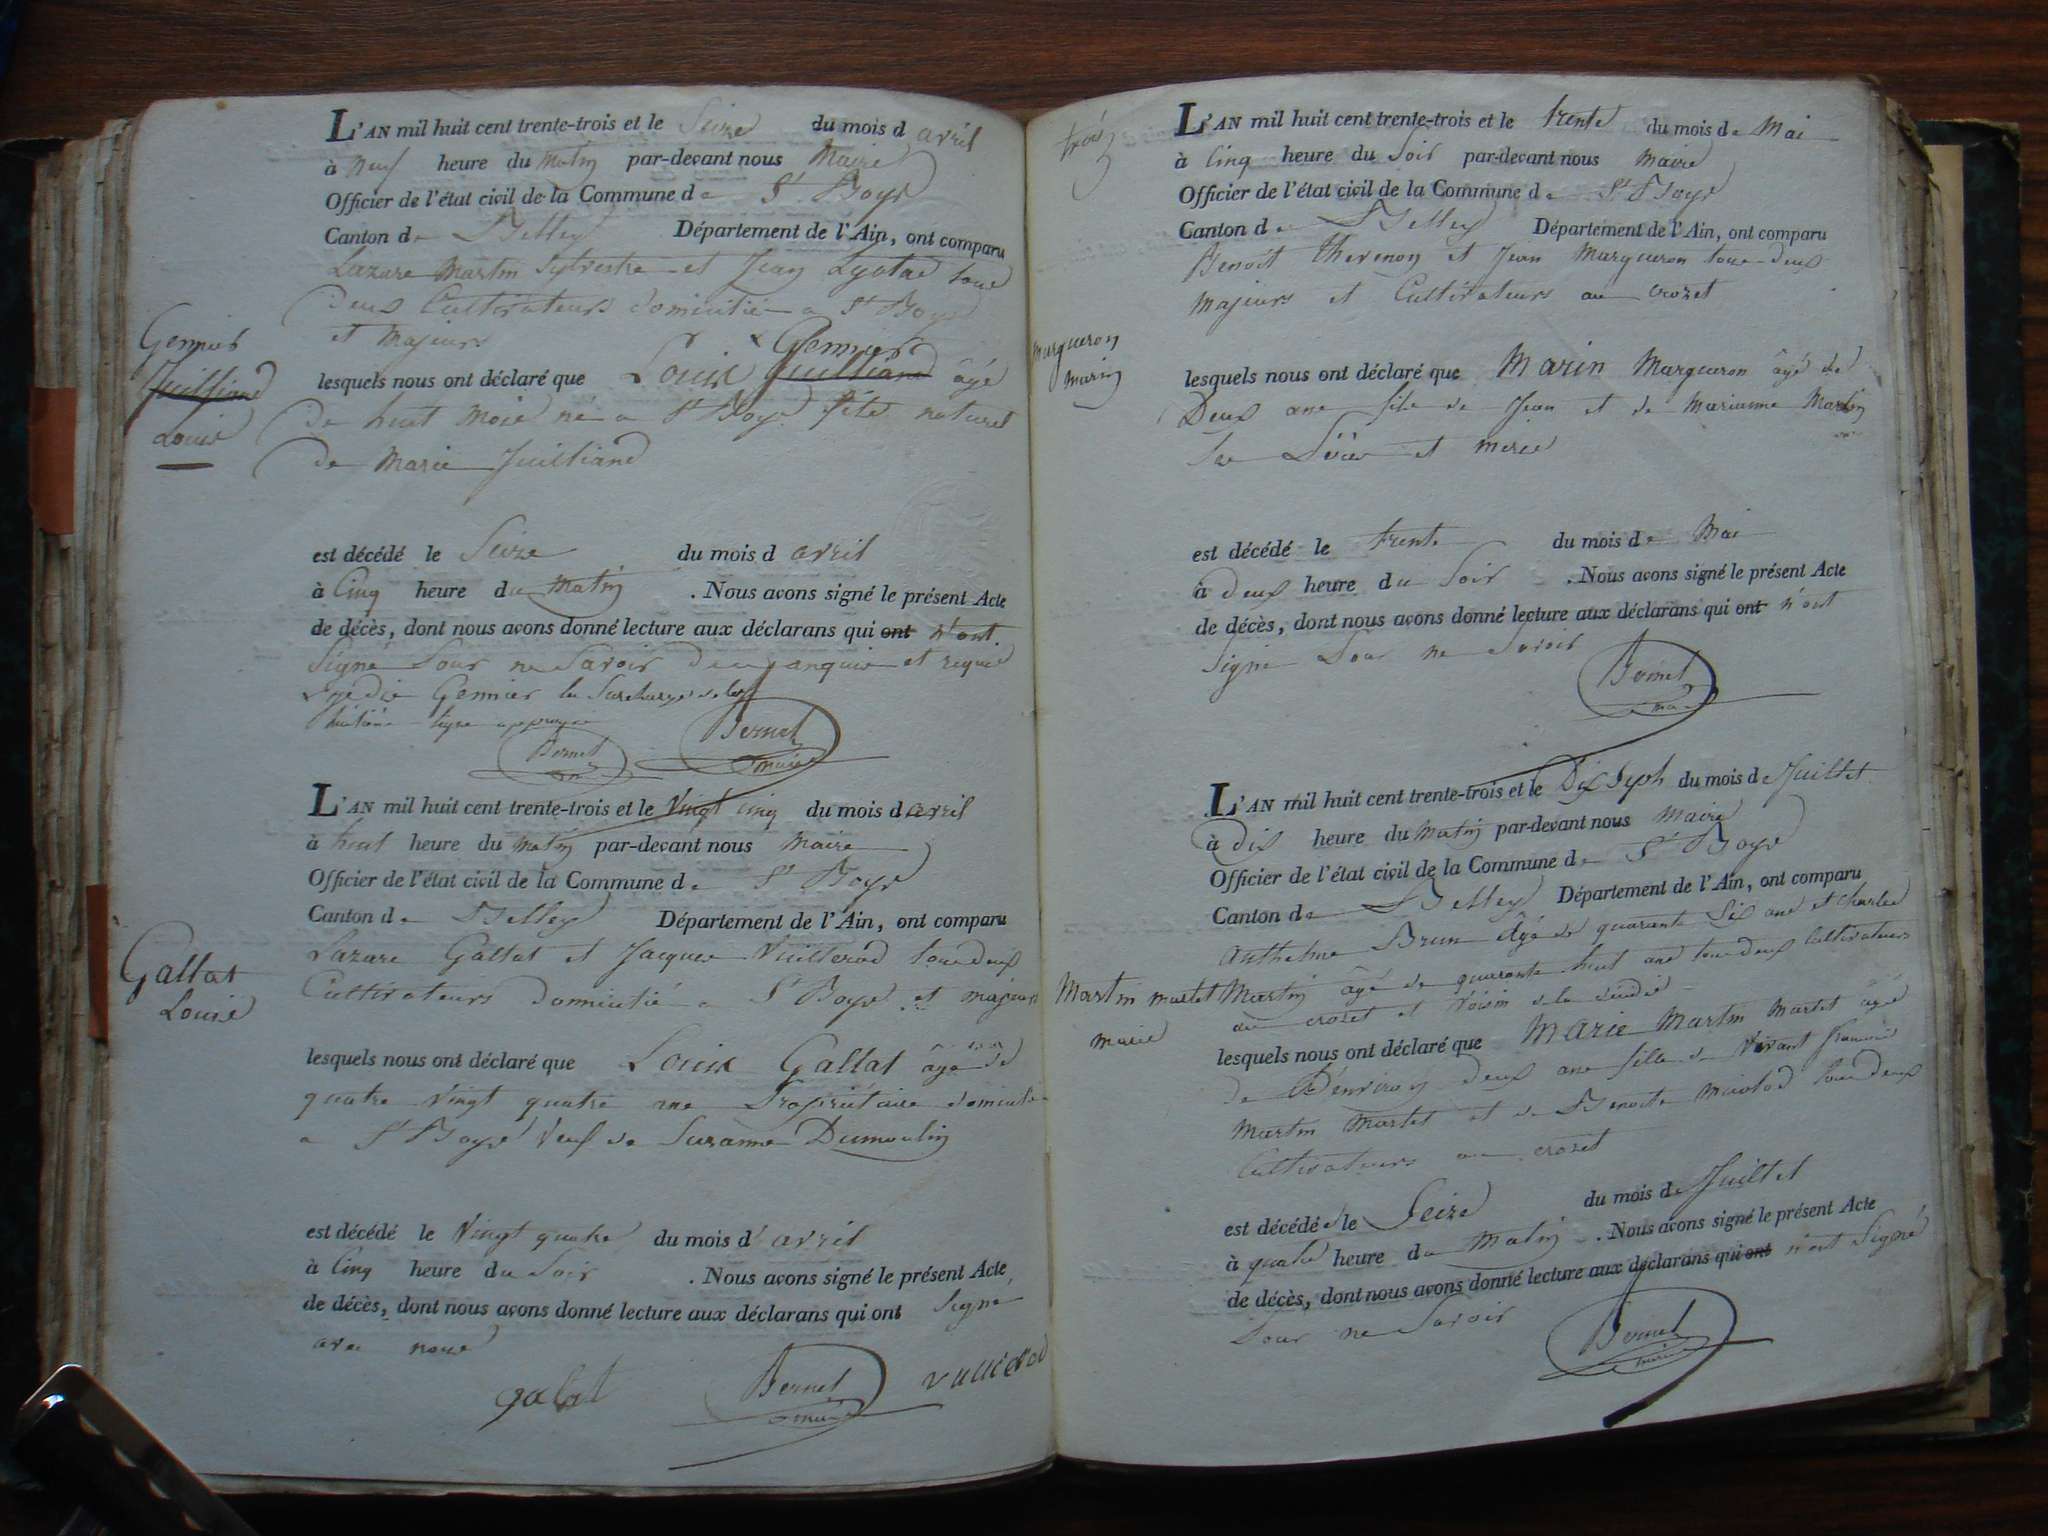 L'AN mil huit cent trente-trois et le Seize du mois d avril
à neuf heure du matin par-devant nous Maire
Officier de l'état civil de la Commune de St Boys
Canton de Belley Département de l'Ain, ont comparu
Lazare Martin Sylvestre et Jean tous
deux Cultivateurs domicilié a St Boys
et Majeurs
Gennier
Juilliand
Louis
Gennier
lesquels nous ont déclaré que Louis Juilliand âgé
de huit mois né a St Boys fils naturel
de Marie Juilliand
est décédé le Seize du mois d avril
à Cinq heure du Matin . Nous avons signé le présent Acte
de décès, dont nous avons donné lecture aux déclarans qui ont n'ont
Signé pour ne Savoir de ce enquis et requis
Gennier la Surcharge
huitième ligne
Bernet Bernet
maire
L'AN mil huit cent trente-trois et le Vingt cinq du mois d avril
à huit heure du matin par-devant nous Maire
Officier de l'état civil de la Commune de St Boys
Canton de Belley Département de l'Ain, ont comparu
Lazare Gallat et Jacques Vuillerod tous deux
Cultivateurs domicilié a St Boys et majeurs
Gallat
Louis
lesquels nous ont déclaré que Louis Gallat âgé de
quatre Vingt quatre ans Propriétaire domicilié
a St Boys Veuf de Suzanne Dumoulin
est décédé le Vingt quatre du mois d avril
à Cinq heure du Soir . Nous avons signé le présent Acte
de décès, dont nous avons donné lecture aux déclarans qui ont Signé
avec nous
galat Bernet vullierod
maire
trois
L'AN mil huit cent trente-trois et le trente du mois de Mai
à Cinq heure du Soir par-devant nous Maire
Officier de l'état civil de la Commune de St Boys
Canton de Belley Département de l'Ain, ont comparu
Benoit thevenon et Jean Margueron tous deux
Majeurs et Cultivateurs au crozet
Margueron
Marin
lesquels nous ont déclaré que Marin Margueron âgé de
Deux ans fils de Jean et de Marianne Martin
Ses Père et mère
est décédé le trente du mois de Mai
à deux heure du Soir . Nous avons signé le présent Acte
de décès, dont nous avons donné lecture aux déclarans qui ont n'ont
Signé Pour ne Savoir
Bernet
maire
L'AN mil huit cent trente-trois et le Dix Sept du mois de Juillet
à Dix heure du matin par-devant nous Maire
Officier de l'état civil de la Commune de St Boys
Canton de Belley Département de l'Ain, ont comparu
Anthelme Brun âgé de quarante Six ans et Charles
Martin âgé de quarante huit ans tous deux Cultivateurs
au crozet et Voisin de la
Martin martet
marie
lesquels nous ont déclaré que Marie Martin Martet âgée
de D'environ deux ans fille de Vivant francois
Martin Martet et de Benoite tous deux
Cultivateurs au crozet
est décédée le Seize du mois de Juillet
à quatre heure du Matin . Nous avons signé le présent Acte
de décès, dont nous avons donné lecture aux déclarans qui ont n'ont Signé
Pour ne Savoir
Bernet
maire